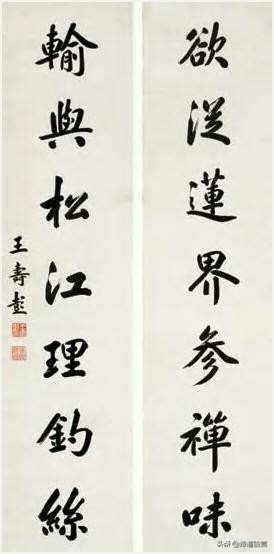 欲從蓮界參禪味
輸與松江理釣絲
王壽彭
头条@师谱说篇